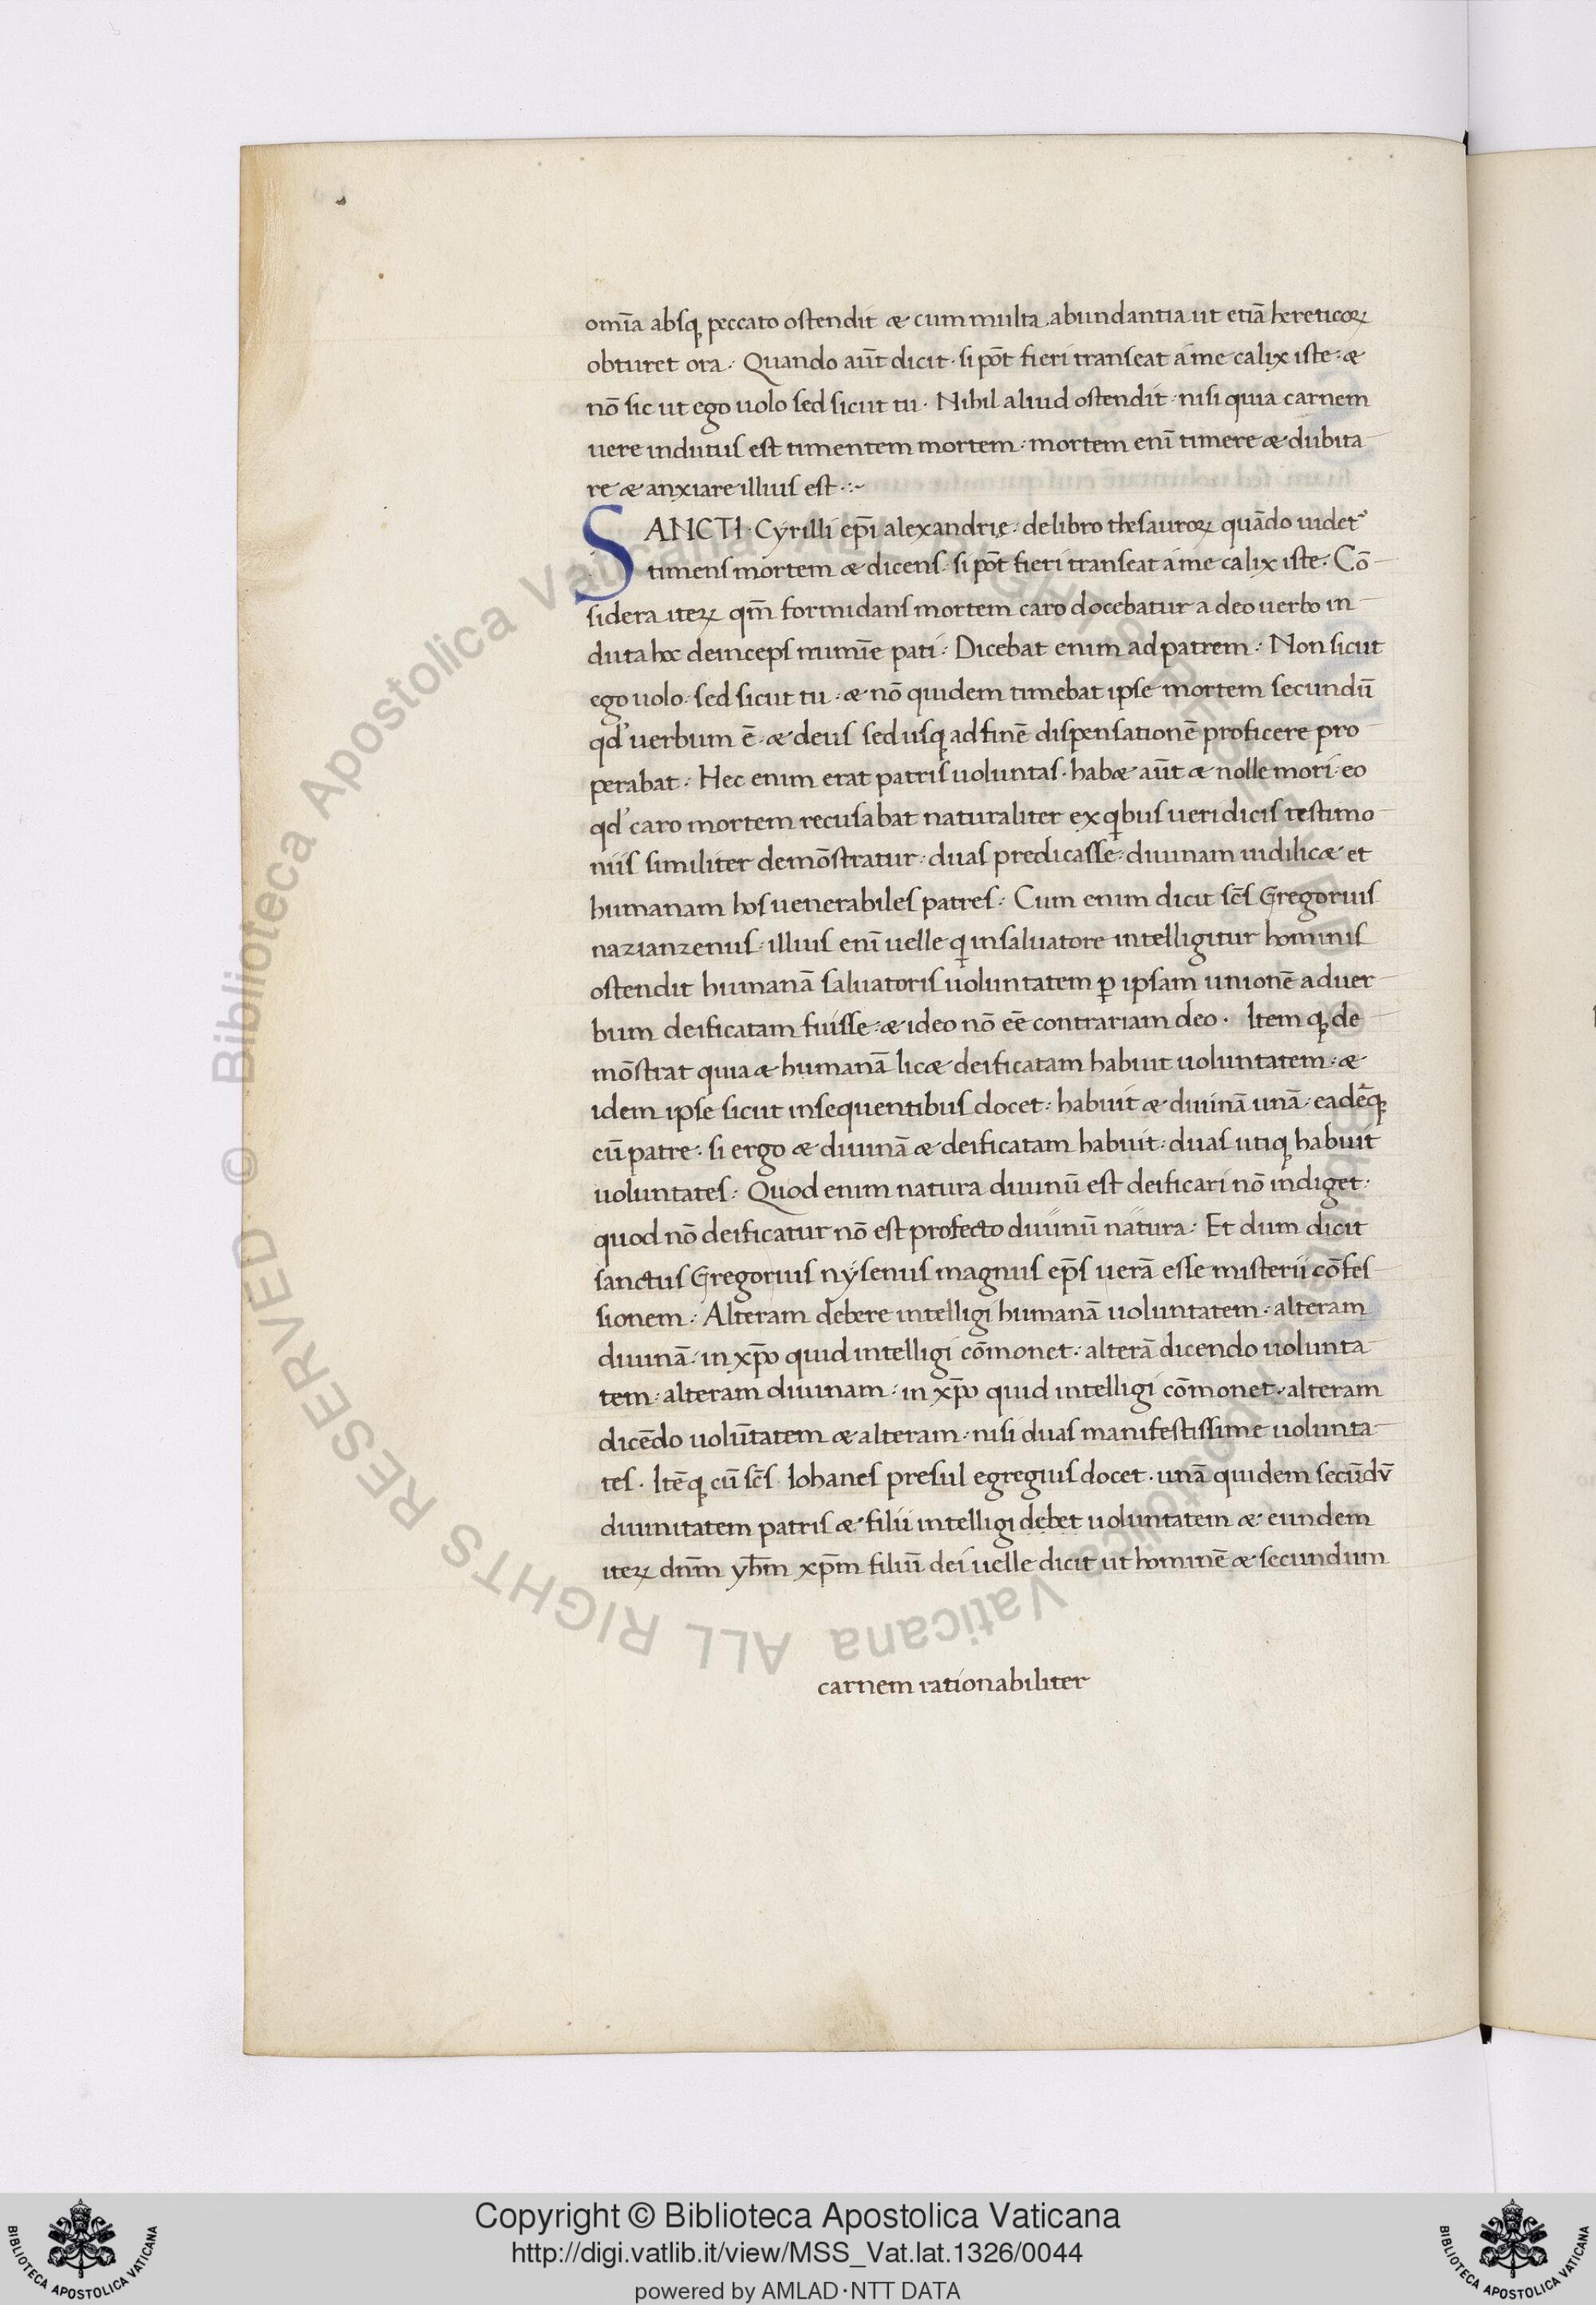 omīa absq; peccato ostendit æ cum multa abundantia ut etiā hereticoꝝ
obturet ora: Quando aūt dicit· si pōt fieri transeat a me calix iste: æ
nō sic ut ego uolo sed sicut tu· Nihil aliud ostendit· nisi quia carnem
uere indutus est timentem mortem: mortem enī timere æ dubita
re æ anxiare illius est·:~
SANCTI· Cyrilli ep̄i alexandrię· de libro thesauroꝝ quādo uidet᷒
timens mortem æ dicens· si pōt fieri transeat a me calix iste· Cō
sidera iteꝝ qm̄ formidans mortem caro docebatur a deo uerbo in
duta hoc deinceps nimīe pati: Dicebat enim ad patrem: Non sicut
ego uolo· sed sicut tu· æ nō quidem timebat ipse mortem secundū
qd' uerbum ē· æ deus sed usq; ad finē dispensationē proficere pro
perabat: Hec enim erat patris uoluntas· habæ aūt æ nolle mori· eo
qd' caro mortem recusabat naturaliter ex qͥbus ueridicis testimo
niis similiter demōstratur· duas predicasse: diuinam uidilicæ et
humanam hos uenerabiles patres: Cum enim dicit sc̄s Gregorius
nazianzenus· illius enī uelle qͥ in saluatore intelligitur hominis
ostendit humanā saluatoris uoluntatem ꝑ ipsam unionē ad uer
bum deificatam fuisse: æ ideo nō eē contrariam deo· Item q; de
mōstrat quia æ humanā licæ deificatam habuit uoluntatem: æ
idem ipse sicut in sequentibus docet: habuit æ diuinā unā· eadēq;
cū patre· si ergo æ diuinā æ deificatam habuit: duas utiq; habuit
uoluntates: Quod enim natura diuinū est deificari nō indiget·
quod nō deificatur nō est profecto diuinū natura: Et dum dicit
sanctus Gregorius nysenus magnus ep̄s uerā esse misterii cōfes
sionem: Alteram debere intelligi humanā uoluntatem· alteram
diuinā· in xp̄o quid intelligi cōmonet· alterā dicendo uolunta
tem· alteram diuinam· in xp̄o quid intelligi cōmonet· alteram
dicēdo uolūtatem æ alteram· nisi duas manifestissime uolunta
tes· Itēq; cū sc̄s Iohanes presul egregius docet· unā quidem secūdv̄
diuinitatem patris æ filii intelligi debet uoluntatem æ eundem
iteꝝ dn̄m yh̄m xp̄m filiū dei uelle dicit ut hominē æ secundum
carnem rationabiliter
© Biblioteca Apostolica Vaticana ALL RIGHTS RESERVED
Copyright © Biblioteca Apostolica Vaticana
http://digi.vatlib.it/view/MSS_Vat.lat.1326/0044
powered by AMLAD·NTT DATA
BIBLIOTECA APOSTOLICA VATICANA
BIBLIOTECA APOSTOLICA VATICANA